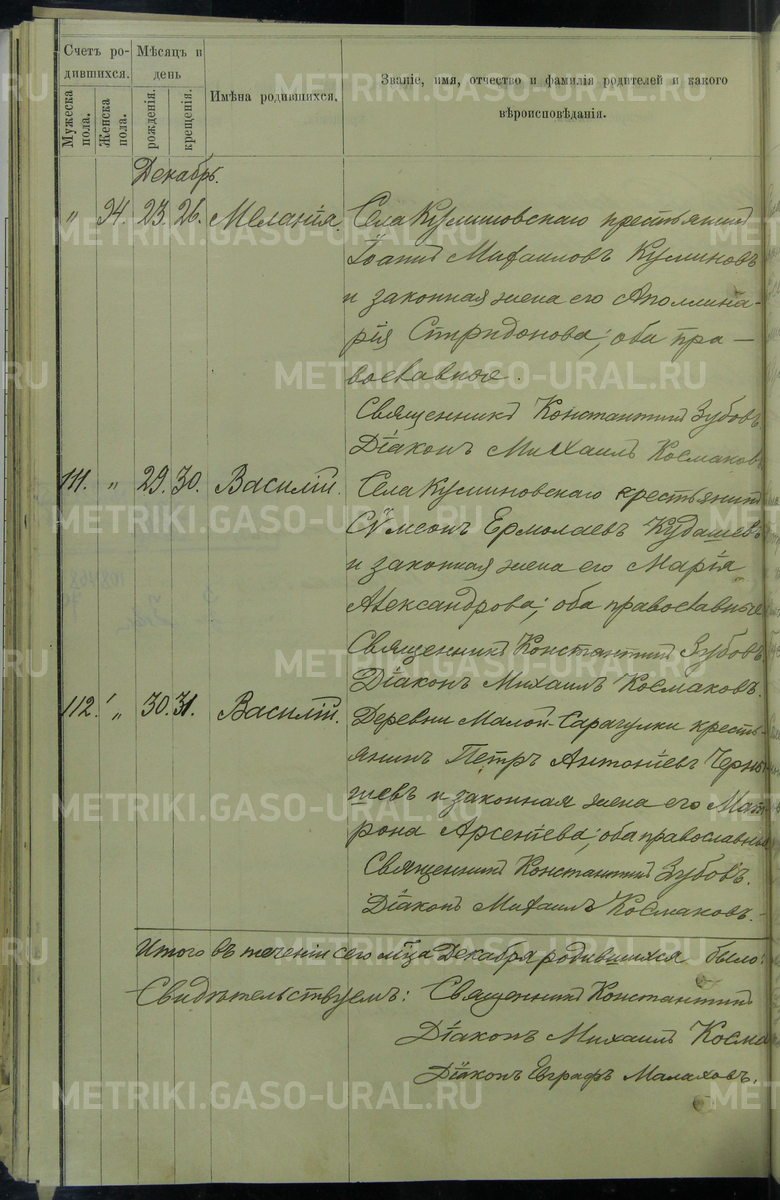 Счетъ ро-
дившихся.
Мѣсяцъ и
день
Мужеска
пола.
Женска
пола.
рожденія.
крещенія.
Имѣна родившихся.
Званіе, имя, отчество и фамилія родителей и какого
вѣроисповѣданія.
Декабрь.
„ 94. 23. 26. Меланія. Села Куминовскаго крестьянинъ
Іоаннъ Михаиловъ Куминовъ
и законная жена его Аполлина-
рія Спиридонова; оба пра-
вославные.
Священникъ Константинъ Зубовъ
Діаконъ Михаилъ Космаковъ
111. „ 29. 30. Василій. Села Куминовскаго крестьянинъ
Сѵмеонъ Ермолаевъ Кудашевъ
и законная жена его Марія
Александрова; оба православные
Священникъ Константинъ Зубовъ
Діаконъ Михаилъ Космаковъ.
112. „ 30. 31. Василій. Деревни Малой-Сарагулки кресть-
янинъ Петръ Антоніевъ Черны-
шевъ и законная жена его Мат-
рона Арсеніева; оба православные
Священникъ Константинъ Зубовъ.
Діаконъ Михаилъ Космаковъ.
Итого въ теченіи сего м҃ца Декабря родившихся было:
Свидѣтельствуемъ: Священникъ Константинъ
Діаконъ Михаилъ Косма
Діаконъ Евграфъ Малаховъ.
METRIKI.GASO-URAL.RU